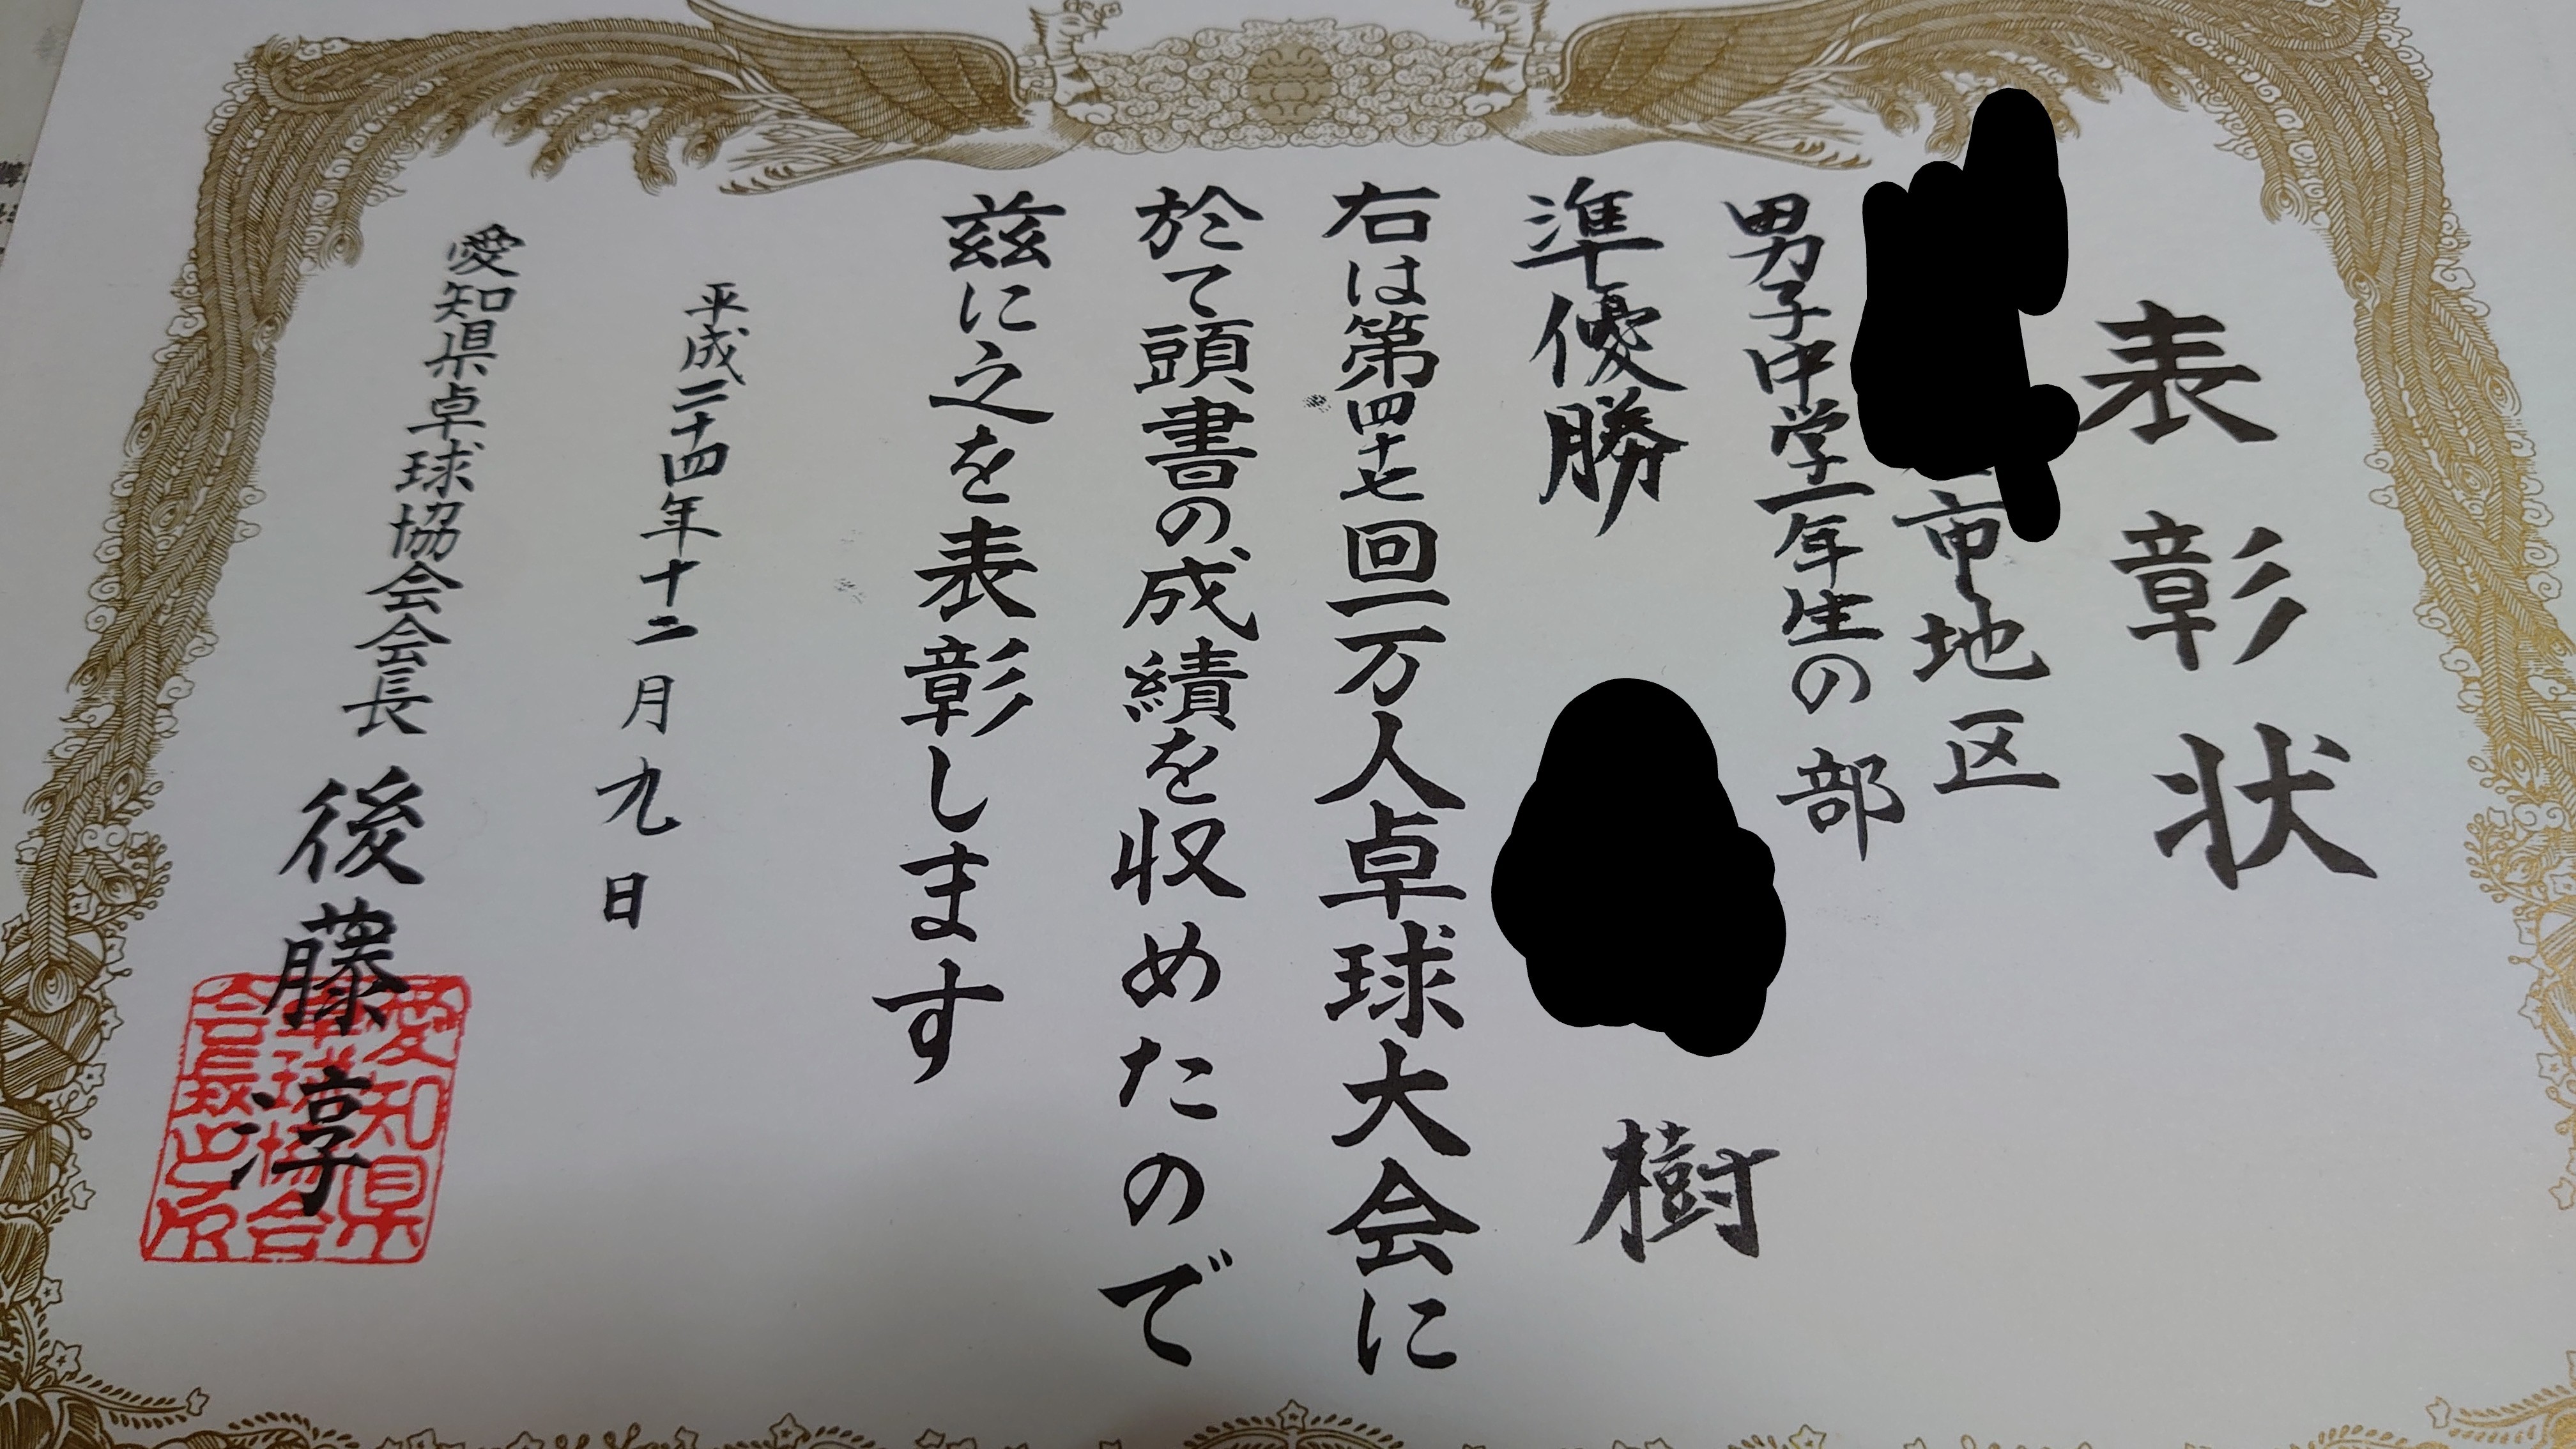 表彰状
市地区
男子中学一年生の部
準優勝
樹
右は第四十七回一万人卓球大会に
於て頭書の成績を収めたので
茲に之を表彰します
平成二十四年十二月九日
愛知県卓球協会会長 後藤淳
愛知県
卓球協会
会長之印